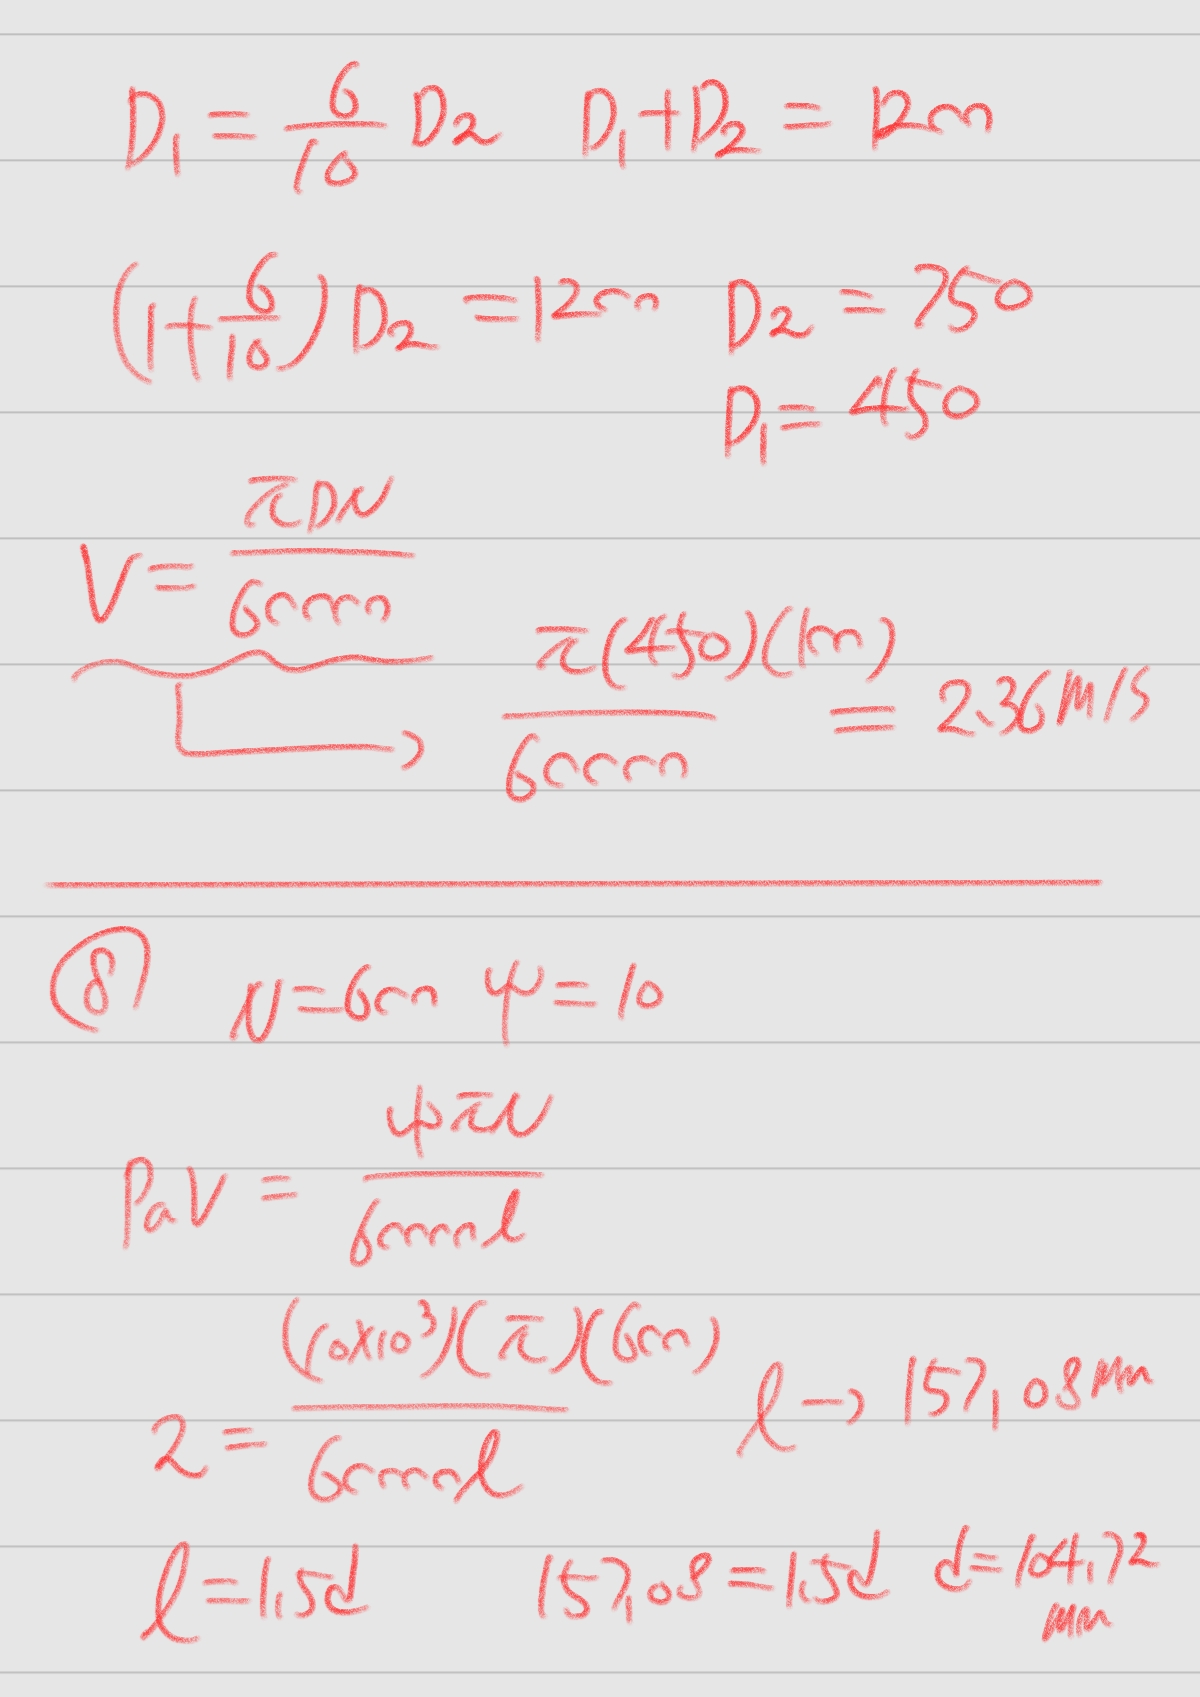 D₁ = 6/10 D₂  D₁+D₂ = 1200
(1+6/10)D₂ = 1200  D₂ = 750
D₁ = 450
V = πDN/60000
π(450)(100)/60000 = 2.36 M/S
⑧ N=600 ψ=10
PaV = ψπN/60000l
2 = (10×10³)(π)(600)/60000l  l → 157,08 mm
l=1,5d  157,08=1,5d  d=104,72 mm